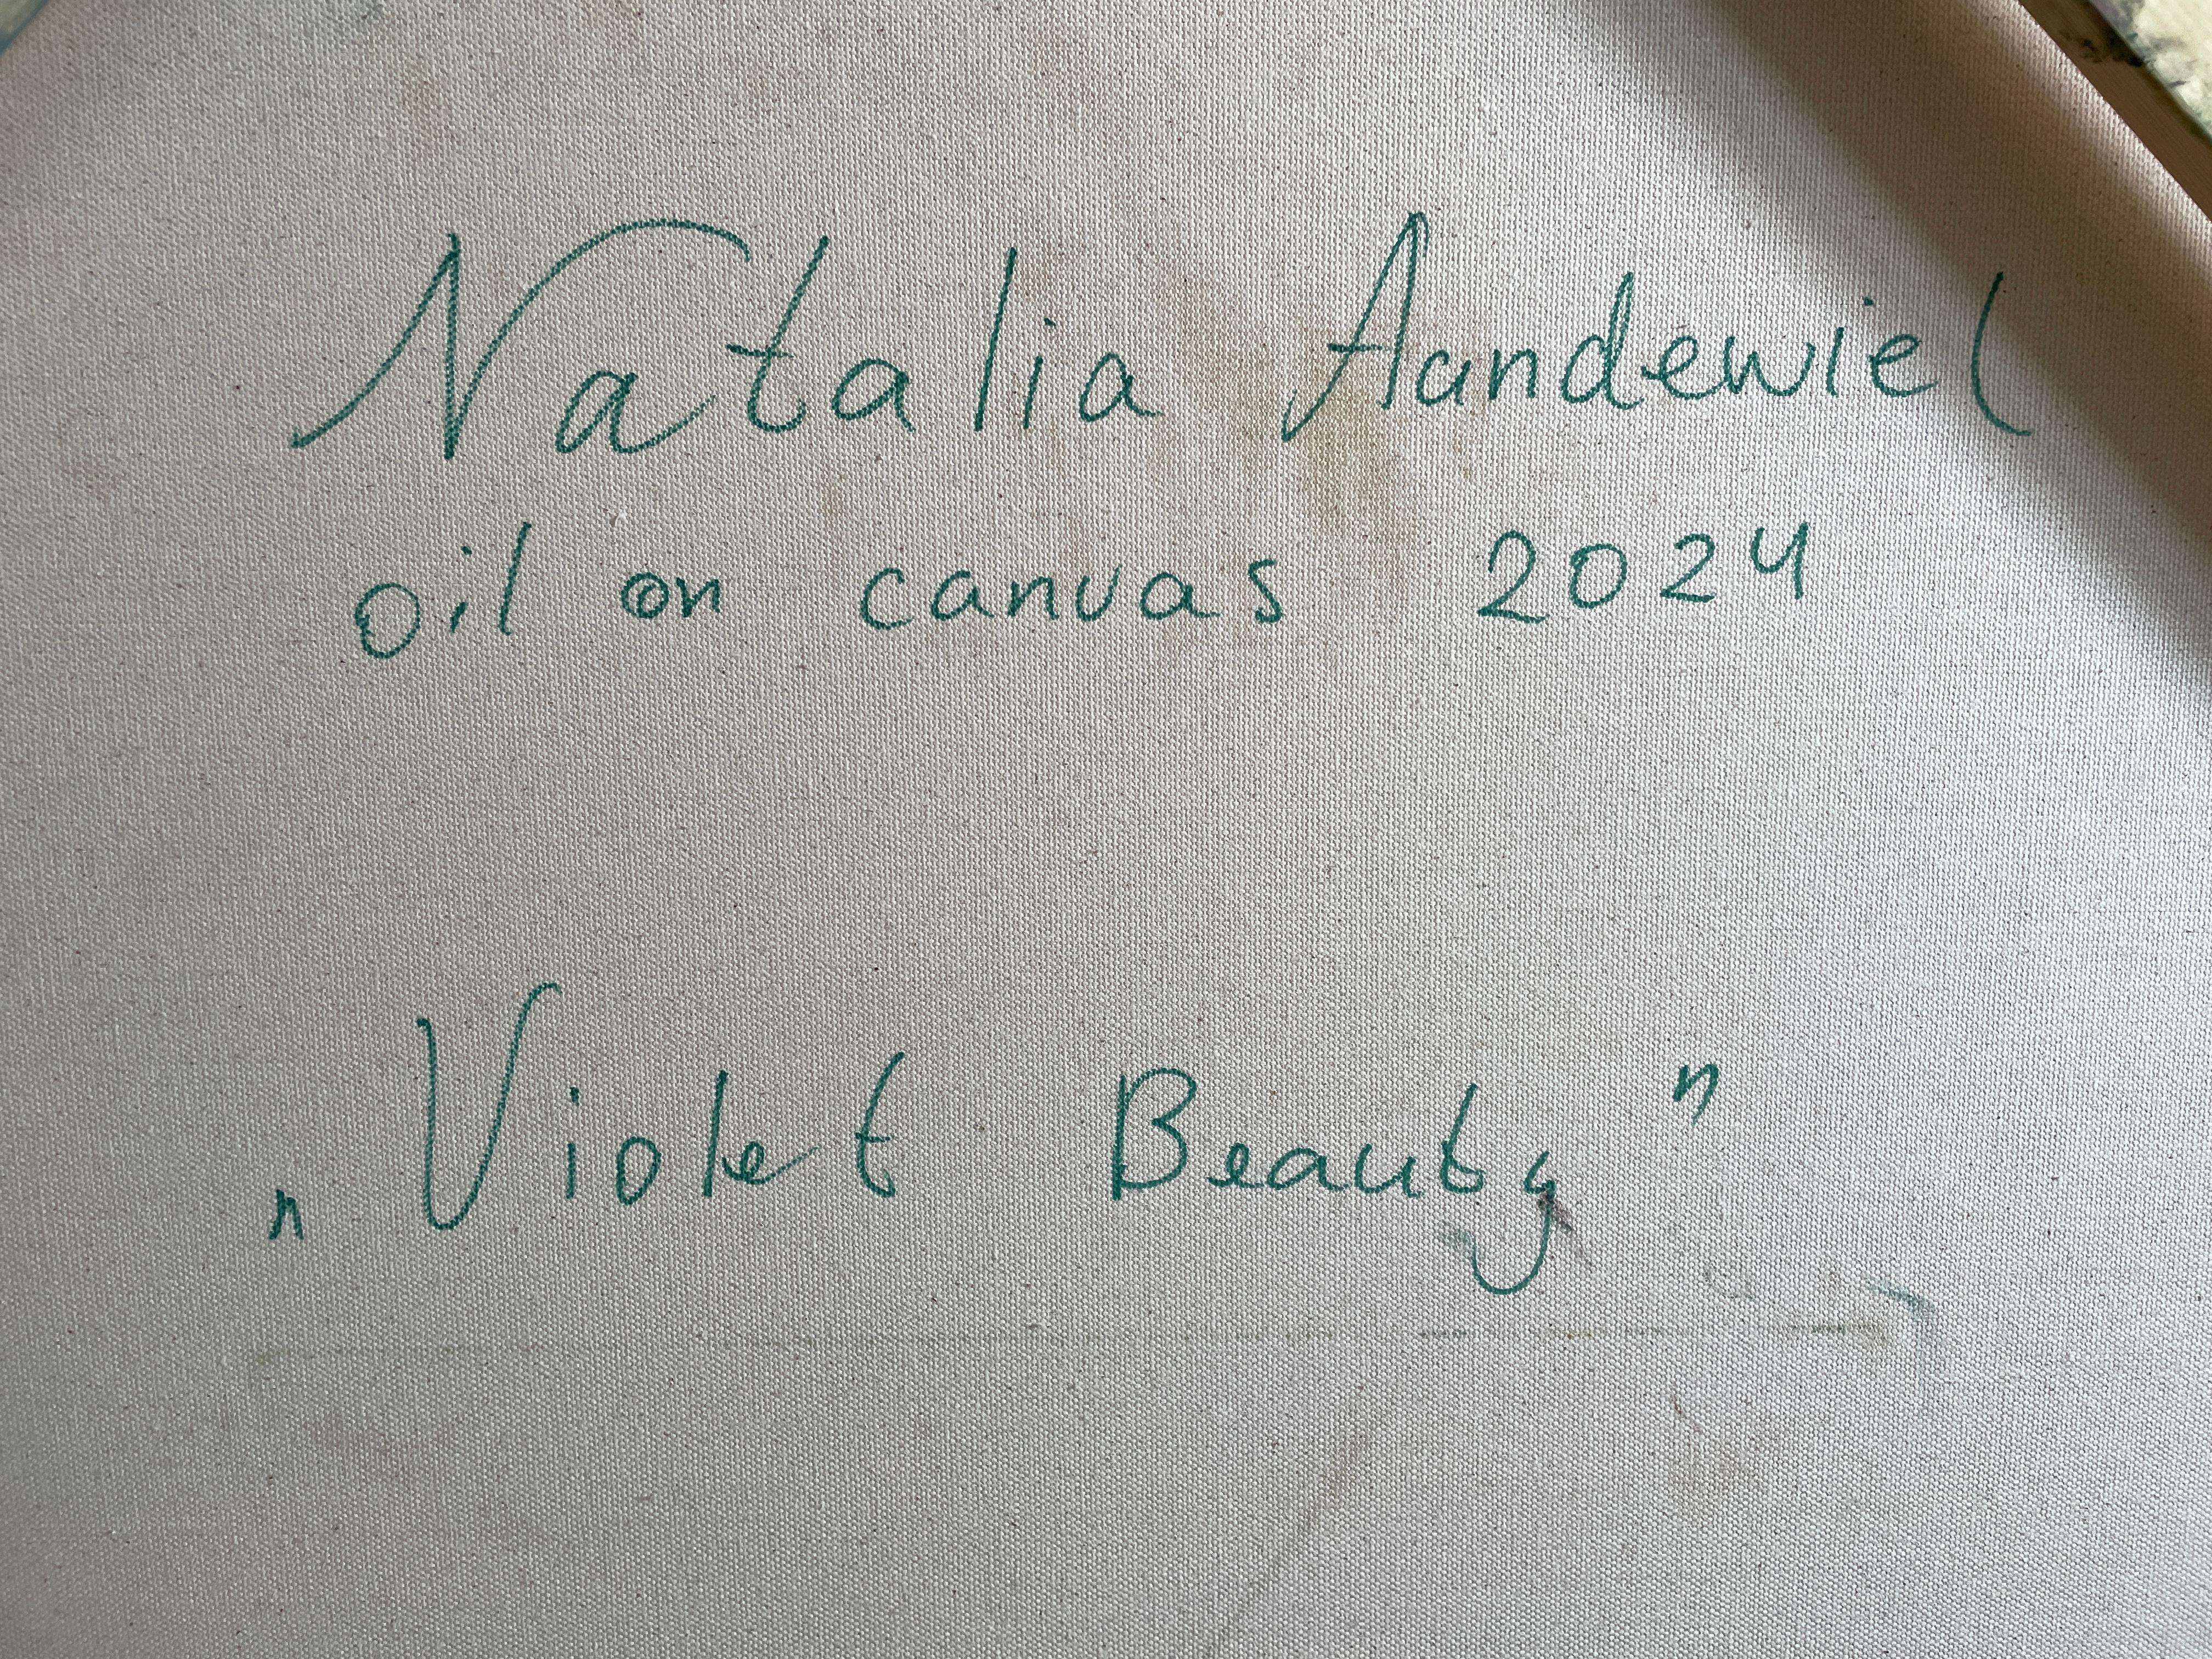 Natalia Aandewiel
oil on canvas 2024
„Violet Beauty"